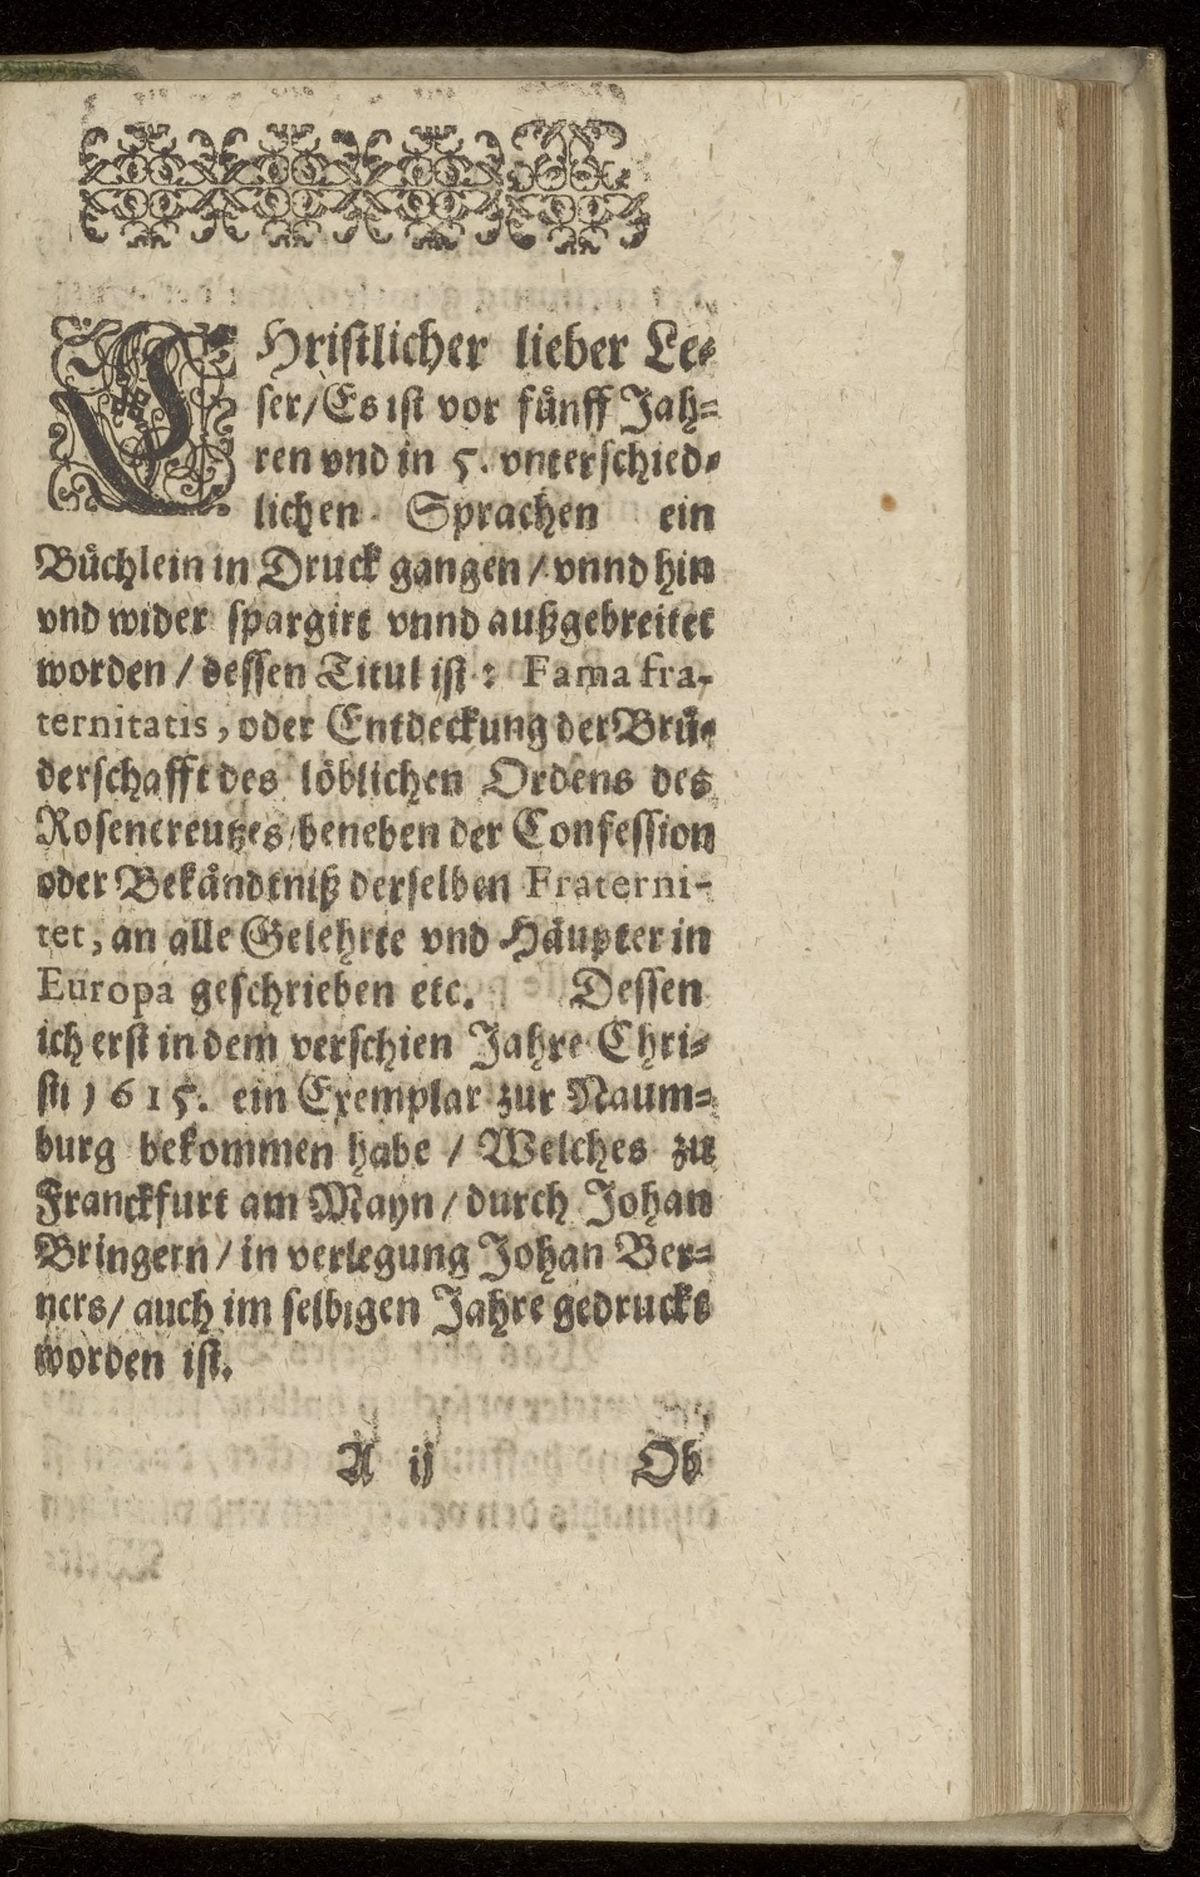 CHristlicher lieber Le-
ser/Es ist vor fünff Jah-
ren vnd in 5. vnterschied-
lichen Sprachen ein
Büchlein in Druck gangen / vnnd hin
vnd wider spargirt vnnd außgebreitet
worden / dessen Titul ist : Fama fra-
ternitatis, oder Entdeckung der Brü-
derschafft des löblichen Ordens des
Rosencreutzes/beneben der Confession
oder Bekändtniß derselben Fraterni-
tet, an alle Gelehrte vnd Häupter in
Europa geschrieben etc. Dessen
ich erst in dem verschien Jahre Chri-
sti 1615. ein Exemplar zur Naum-
burg bekommen habe / Welches zu
Franckfurt am Mayn / durch Johan
Bringern / in verlegung Johan Ber-
ners/ auch im selbigen Jahre gedruckt
worden ist.
A ij Ob